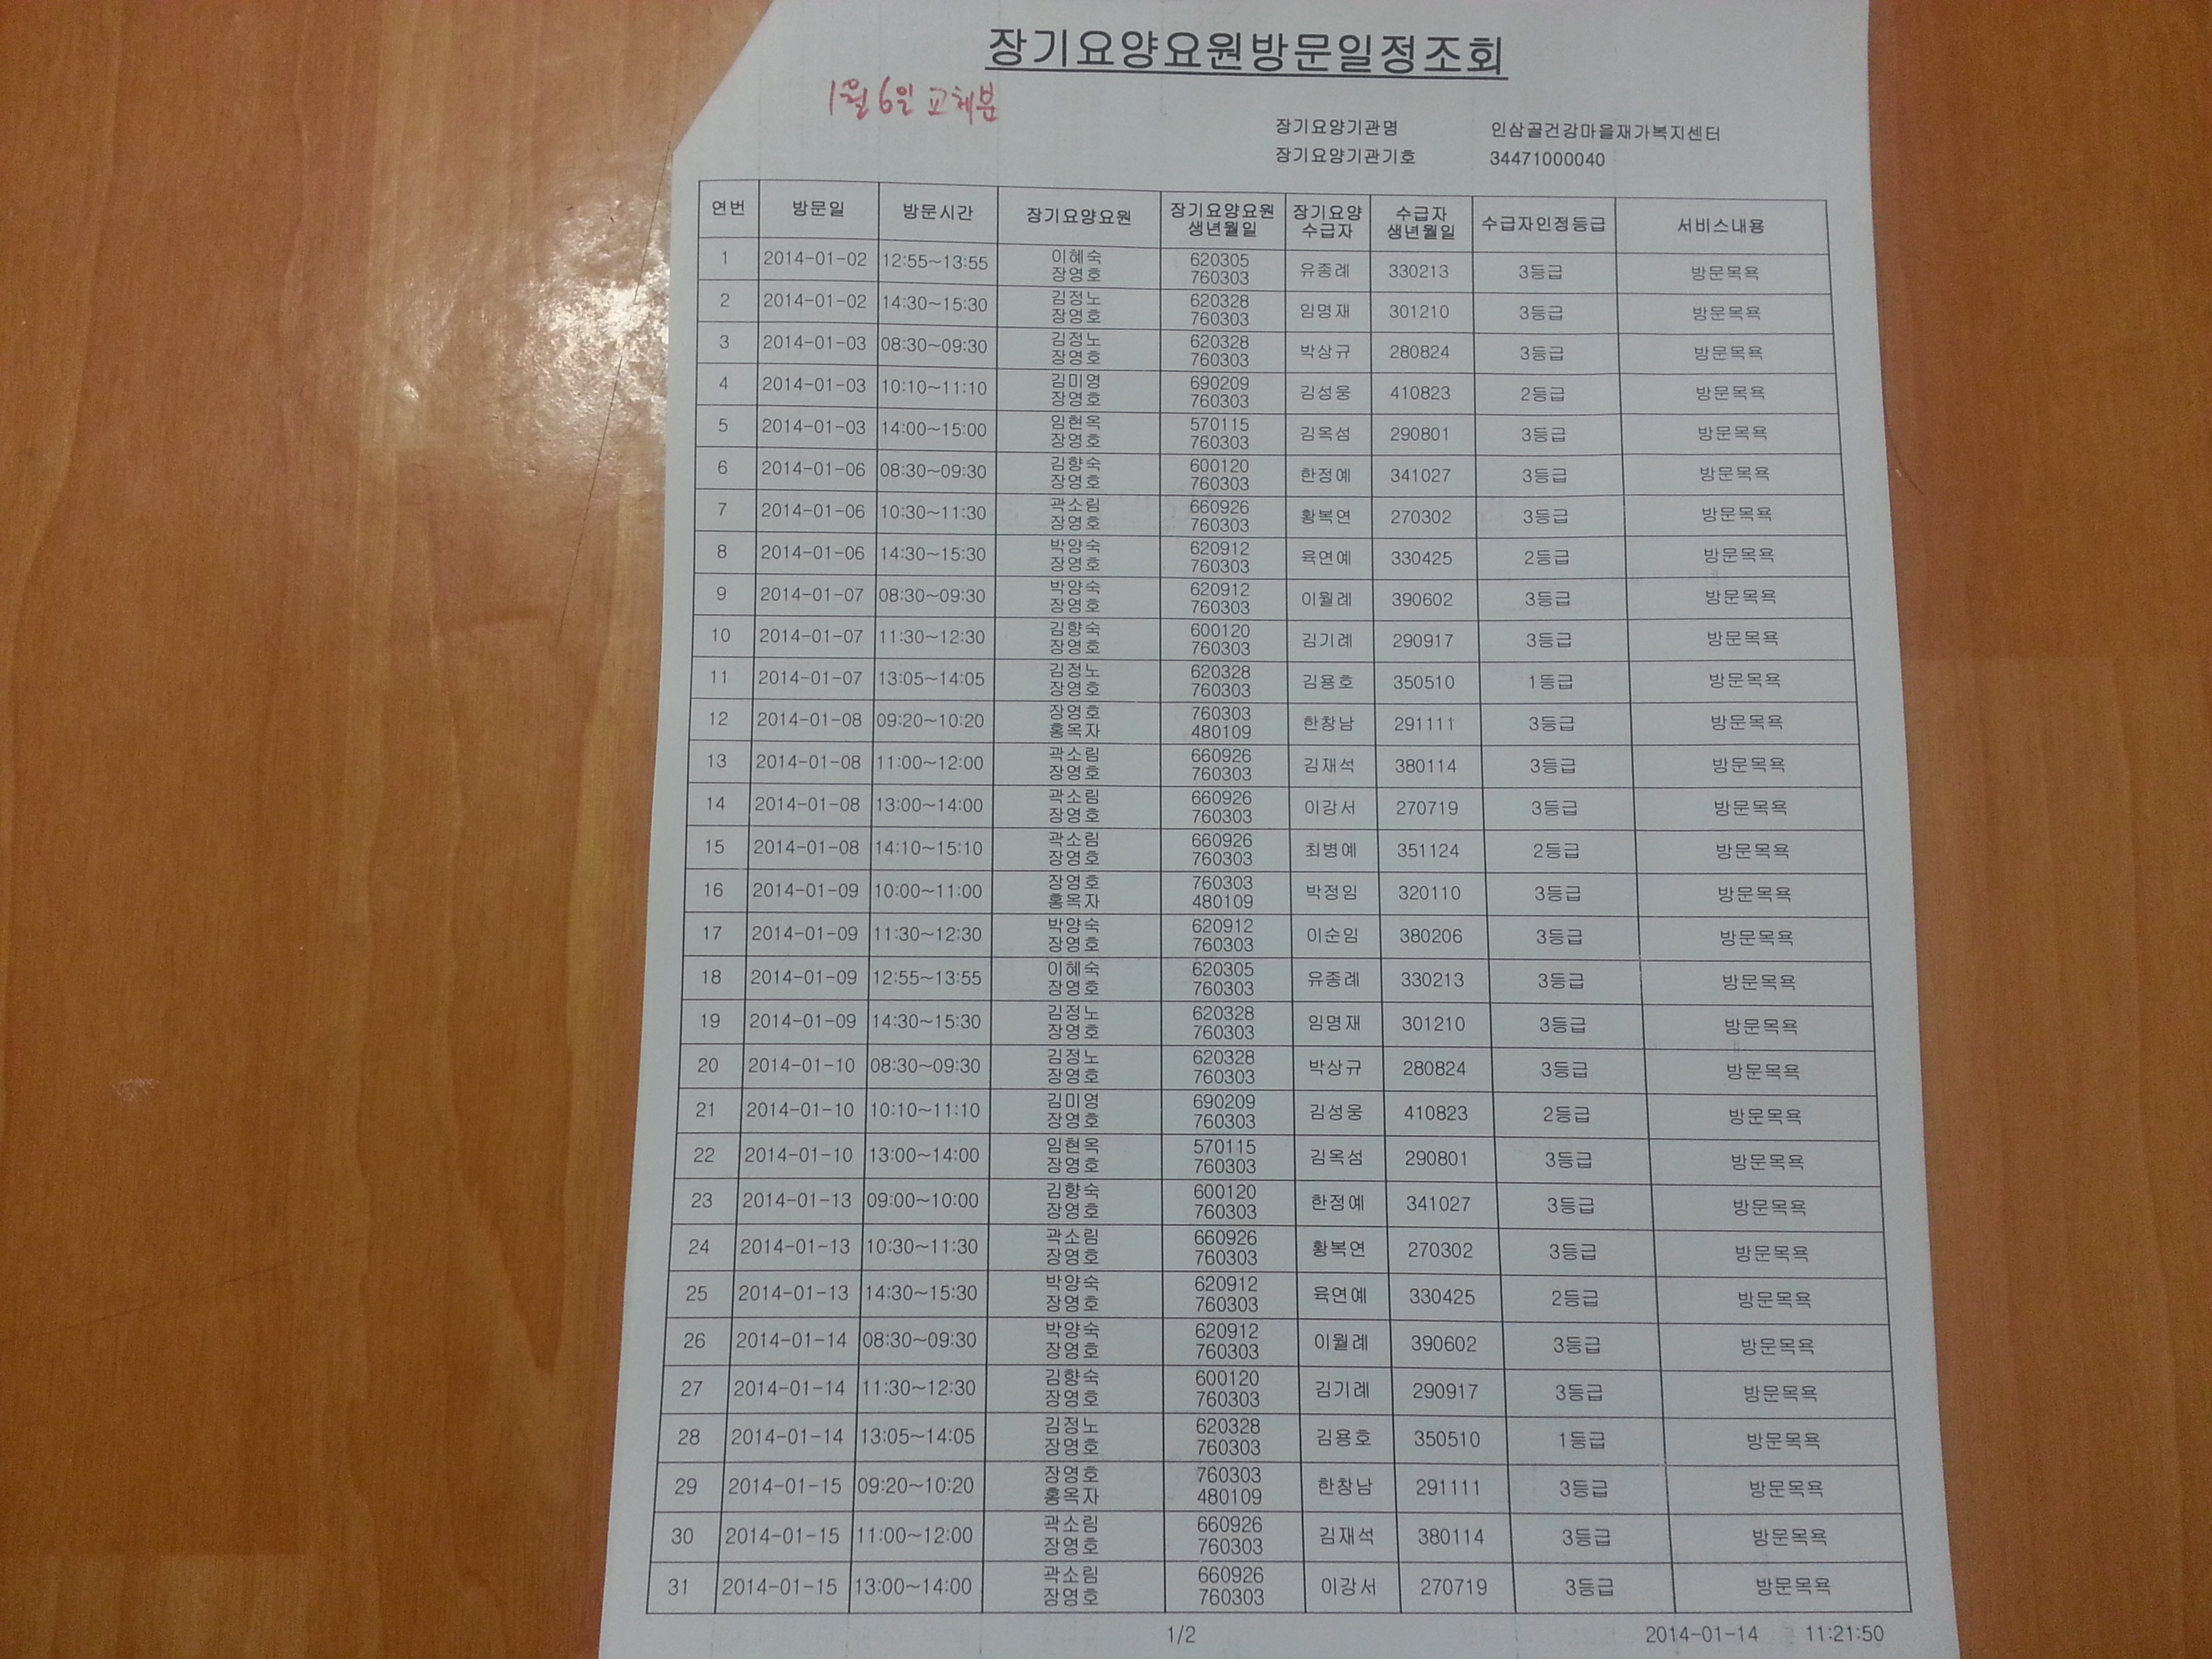 장기요양요원방문일정조회
1월 6일 교체분
장기요양기관명 인삼골건강마을재가복지센터
장기요양기관기호 34471000040
연번 방문일 방문시간 장기요양요원 장기요양요원 생년월일 장기요양 수급자 수급자 생년월일 수급자인정등급 서비스내용
1 2014-01-02 12:55~13:55 이혜숙 장영호 620305 760303 유종례 330213 3등급 방문목욕
2 2014-01-02 14:30~15:30 김정노 장영호 620328 760303 임명재 301210 3등급 방문목욕
3 2014-01-03 08:30~09:30 김정노 장영호 620328 760303 박상규 280824 3등급 방문목욕
4 2014-01-03 10:10~11:10 김미영 장영호 690209 760303 김성웅 410823 2등급 방문목욕
5 2014-01-03 14:00~15:00 임현옥 장영호 570115 760303 김옥섬 290801 3등급 방문목욕
6 2014-01-06 08:30~09:30 김향숙 장영호 600120 760303 한정예 341027 3등급 방문목욕
7 2014-01-06 10:30~11:30 곽소림 장영호 660926 760303 황복연 270302 3등급 방문목욕
8 2014-01-06 14:30~15:30 박양숙 장영호 620912 760303 육연예 330425 2등급 방문목욕
9 2014-01-07 08:30~09:30 박양숙 장영호 620912 760303 이월례 390602 3등급 방문목욕
10 2014-01-07 11:30~12:30 김향숙 장영호 600120 760303 김기례 290917 3등급 방문목욕
11 2014-01-07 13:05~14:05 김정노 장영호 620328 760303 김용호 350510 1등급 방문목욕
12 2014-01-08 09:20~10:20 장영호 홍옥자 760303 480109 한창남 291111 3등급 방문목욕
13 2014-01-08 11:00~12:00 곽소림 장영호 660926 760303 김재석 380114 3등급 방문목욕
14 2014-01-08 13:00~14:00 곽소림 장영호 660926 760303 이강서 270719 3등급 방문목욕
15 2014-01-08 14:10~15:10 곽소림 장영호 660926 760303 최병예 351124 2등급 방문목욕
16 2014-01-09 10:00~11:00 장영호 홍옥자 760303 480109 박정임 320110 3등급 방문목욕
17 2014-01-09 11:30~12:30 박양숙 장영호 620912 760303 이순임 380206 3등급 방문목욕
18 2014-01-09 12:55~13:55 이혜숙 장영호 620305 760303 유종례 330213 3등급 방문목욕
19 2014-01-09 14:30~15:30 김정노 장영호 620328 760303 임명재 301210 3등급 방문목욕
20 2014-01-10 08:30~09:30 김정노 장영호 620328 760303 박상규 280824 3등급 방문목욕
21 2014-01-10 10:10~11:10 김미영 장영호 690209 760303 김성웅 410823 2등급 방문목욕
22 2014-01-10 13:00~14:00 임현옥 장영호 570115 760303 김옥섬 290801 3등급 방문목욕
23 2014-01-13 09:00~10:00 김향숙 장영호 600120 760303 한정예 341027 3등급 방문목욕
24 2014-01-13 10:30~11:30 곽소림 장영호 660926 760303 황복연 270302 3등급 방문목욕
25 2014-01-13 14:30~15:30 박양숙 장영호 620912 760303 육연예 330425 2등급 방문목욕
26 2014-01-14 08:30~09:30 박양숙 장영호 620912 760303 이월례 390602 3등급 방문목욕
27 2014-01-14 11:30~12:30 김향숙 장영호 600120 760303 김기례 290917 3등급 방문목욕
28 2014-01-14 13:05~14:05 김정노 장영호 620328 760303 김용호 350510 1등급 방문목욕
29 2014-01-15 09:20~10:20 장영호 홍옥자 760303 480109 한창남 291111 3등급 방문목욕
30 2014-01-15 11:00~12:00 곽소림 장영호 660926 760303 김재석 380114 3등급 방문목욕
31 2014-01-15 13:00~14:00 곽소림 장영호 660926 760303 이강서 270719 3등급 방문목욕
1/2 2014-01-14 11:21:50